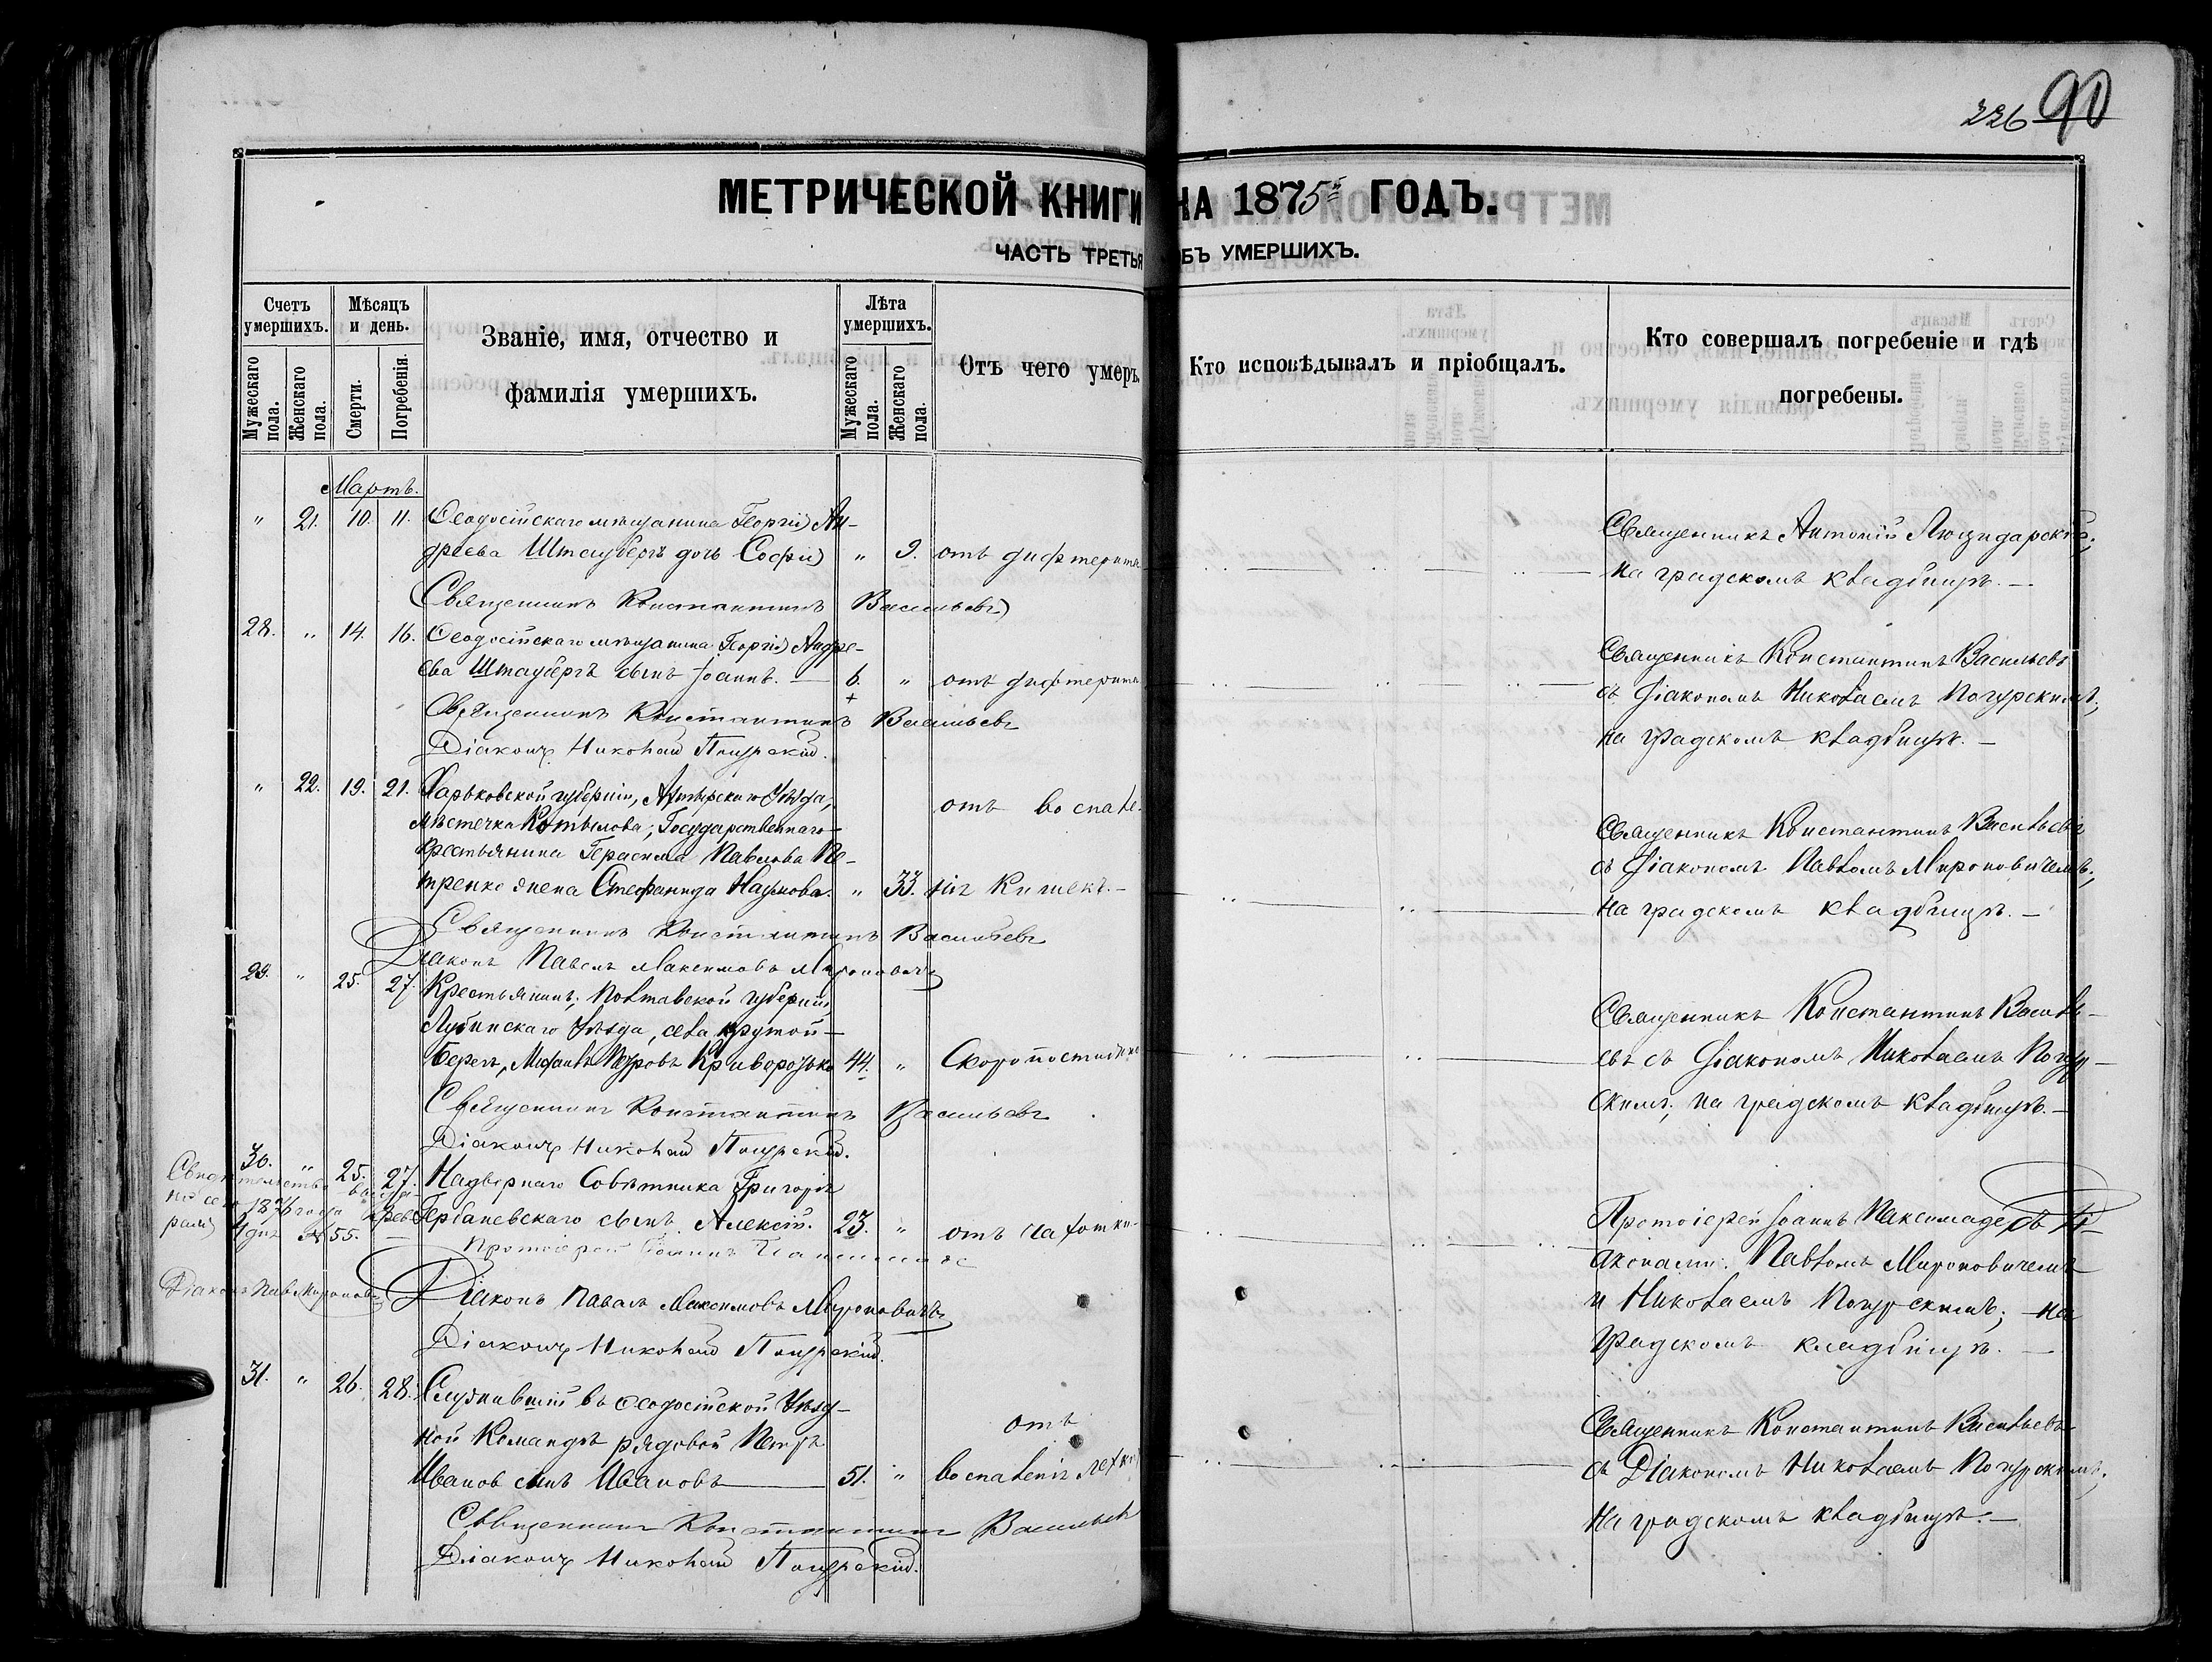 226 90
МЕТРИЧЕСКОЙ КНИГИ НА 1875й ГОДЪ.
ЧАСТЬ ТРЕТЬЯ ОБЪ УМЕРШИХЪ.
Счетъ умершихъ.
Мужескаго пола.
Женскаго пола.
Мѣсяцъ и день.
Смерти.
Погребенія.
Званіе, имя, отчество и
фамилія умершихъ.
Лѣта умершихъ.
Мужескаго пола.
Женскаго пола.
Отъ чего умеръ.
Кто исповѣдывалъ и пріобщалъ.
Кто совершалъ погребеніе и гдѣ
погребены.
Мартъ.
" 21. 10. 11. Ѳеодосійскаго мѣщанина Георгія Ан-
дреева Штауберъ дочь Софія " 9. отъ дифтерита
Священникъ Антоній
на градскомъ кладбищѣ. —
Священникъ Константинъ Васильевъ
28. " 14. 16. Ѳеодосійскаго мѣщанина Георгія Андре-
ева Штауберъ сынъ Іоаннъ. — 6. " отъ дифтерита
Священникъ Константинъ Васильевъ
съ Діакономъ Николаемъ Погурскимъ;
на градскомъ кладбищѣ. —
Священникъ Константинъ Васильевъ
Діаконъ Николай Погурскій.
" 22. 19. 21. Харьковской губерніи, Ахтырскаго Уѣзда,
мѣстечка Котылова, Государственнаго
крестьянина Герасима Павлова Пе-
тренко жена Стефанида Наумова. " 33. отъ воспале-
нія кишекъ. —
Священникъ Константинъ Васильевъ
съ Діакономъ Павломъ Мироновичемъ;
на градскомъ кладбищѣ. —
Священникъ Константинъ Васильевъ
Діаконъ Павелъ Максимовъ Мироновичъ
29. " 25. 27. Крестьянинъ, Полтавской губерніи,
Лубенскаго Уѣзда, села Крутой-
Берегъ, 44. " Скоропостижно
Священникъ Константинъ Василь-
евъ съ Діакономъ Николаемъ Погур-
скимъ; на градскомъ кладбищѣ. —
Священникъ Константинъ Васильевъ
Діаконъ Николай Погурскій.
30. " 25. 27. Надворнаго Совѣтника Григорія
Гербаневскаго сынъ Алексій. 23. " отъ чахотки.
Протоіерей Іоаннъ Паксимаде съ Ді-
аконами: Павломъ Мироновичемъ
и Николаемъ Погурскимъ; — на
градскомъ кладбищѣ. —
Свидѣтельство выда-
но сего 1876 года Фев-
раля 4 дня № 55.
Діаконъ Пав. Мироновичъ
Протоіерей Іоаннъ Паксимаде
Діаконъ Павелъ Максимовъ Мироновичъ
Діаконъ Николай Погурскій.
31. " 26. 28. Служившій въ Ѳеодосійской Уѣзд-
ной Командѣ рядовой Петръ
Ивановъ сынъ Ивановъ — 51. " отъ
воспаленія легкихъ
Священникъ Константинъ Васильевъ
съ Діакономъ Николаемъ Погурскимъ;
на градскомъ кладбищѣ. —
Священникъ Константинъ Васильевъ
Діаконъ Николай Погурскій.